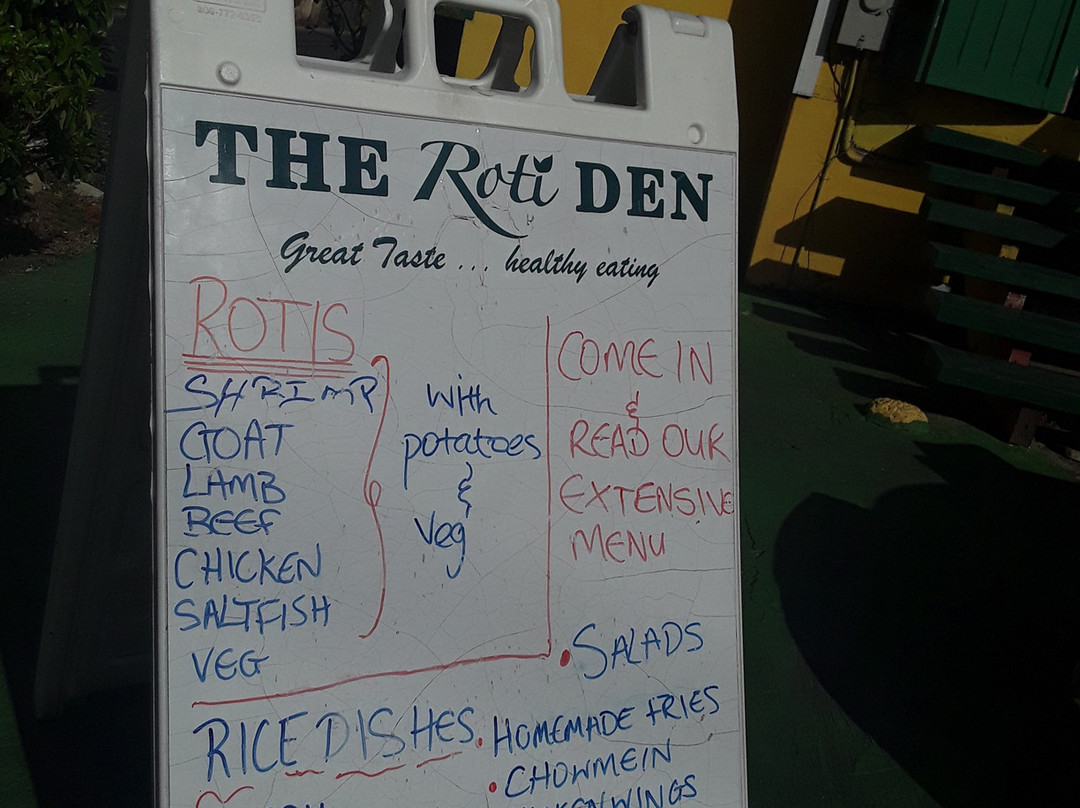 THE Roti DEN
Great Taste ... healthy eating
ROTIS
SHRIMP
GOAT
LAMB
BEEF
CHICKEN
SALTFISH
VEG
with
potatoes
&
Veg
COME IN
&
READ OUR
EXTENSIVE
MENU
• SALADS
RICE DISHES
• HOMEMADE FRIES
• CHOWMEIN
WINGS